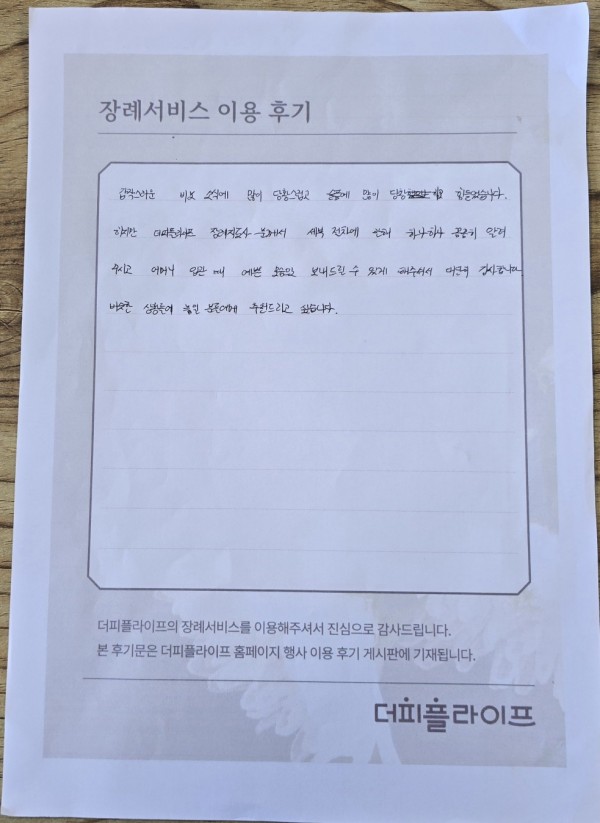 장례서비스 이용 후기
갑작스러운 비보 소식에 많이 당황스럽고 슬픔에 많이 힘들었습니다.
하지만 더피플라이프 장례지도사 분께서 세부 절차에 관해 하나하나 꼼꼼히 알려
주시고 어머니 입관 때 예쁜 모습으로 보내드릴 수 있게 해주셔서 대단히 감사합니다.
비슷한 상황들에 놓인 분들에게 추천드리고 싶습니다.
더피플라이프의 장례서비스를 이용해주셔서 진심으로 감사드립니다.
본 후기문은 더피플라이프 홈페이지 행사 이용 후기 게시판에 기재됩니다.
더피플라이프